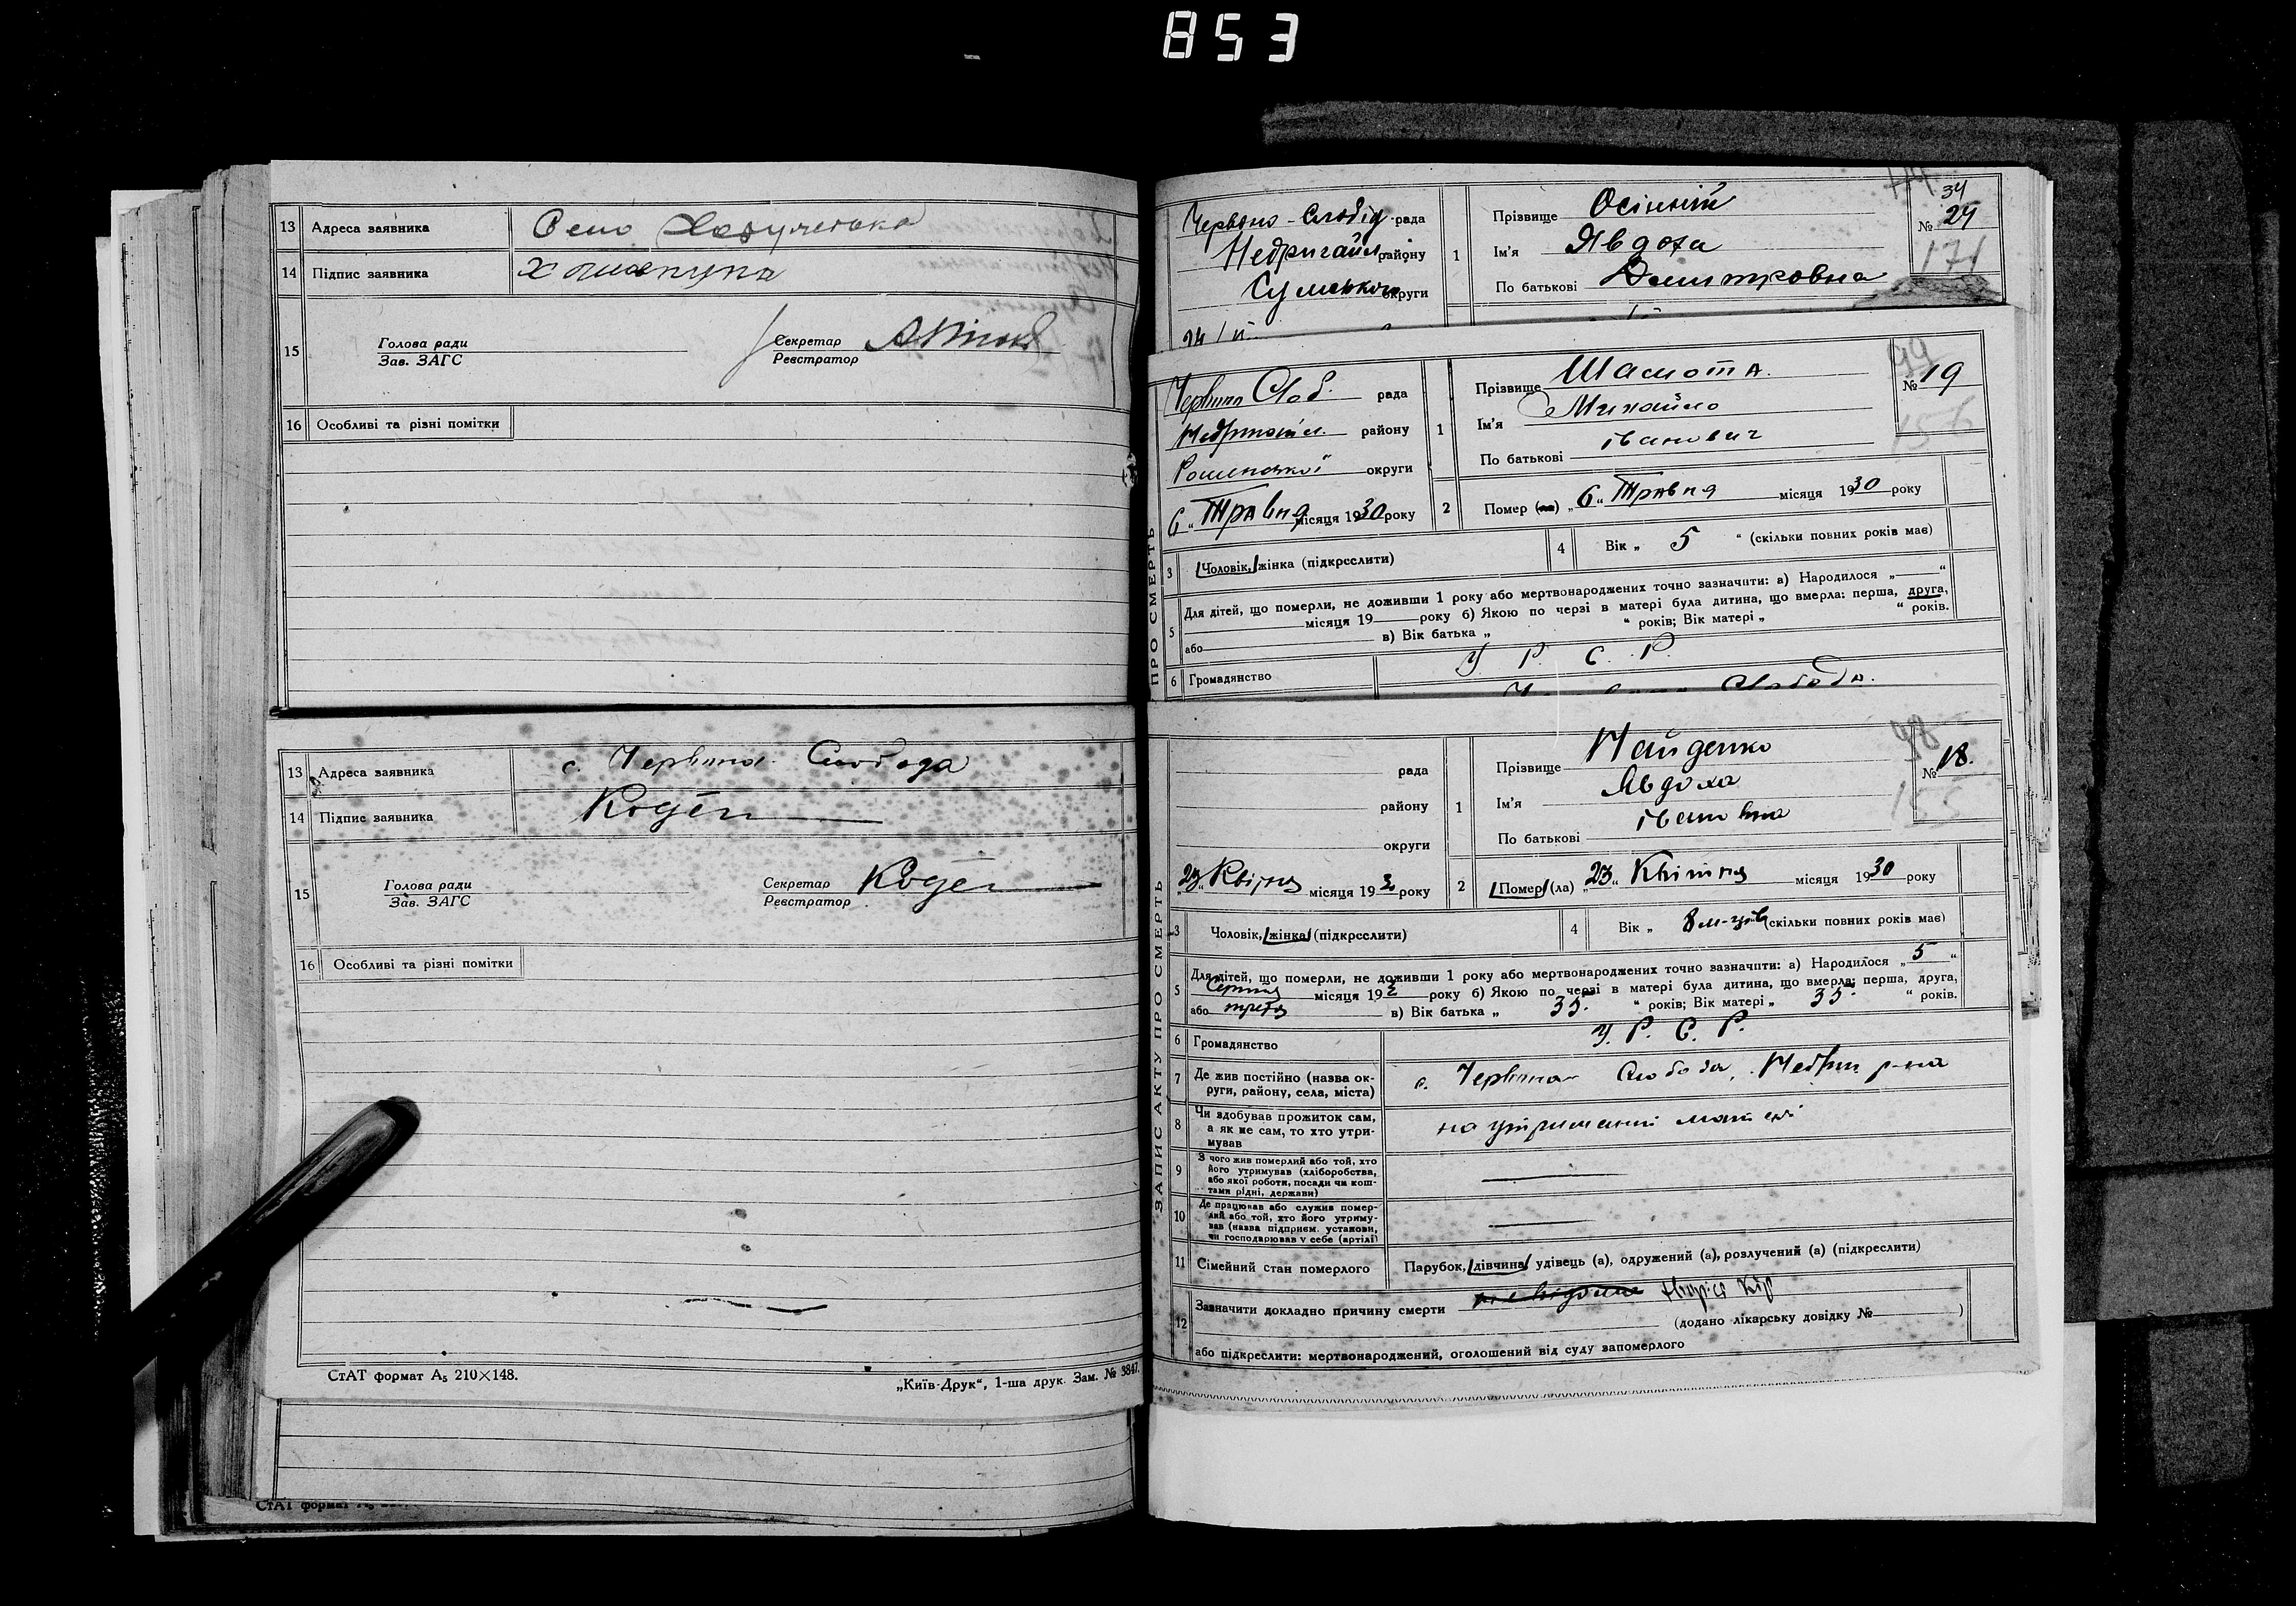 853
13 Адреса заявника Село
14 Підпис заявника
15 Голова ради
Зав. ЗАГС
Секретар
Реєстратор
16 Особливі та різні помітки
13 Адреса заявника с. Червона Слобода
14 Підпис заявника
15 Голова ради
Зав. ЗАГС
Секретар
Реєстратор
16 Особливі та різні помітки
СтАТ формат А₅ 210×148.
„Київ-Друк“, 1-ша друк. Зам. № 3847.
СтАТ формат А₅
Червоно-Слобід рада
Недригайл. району
Сумської округи
1
Прізвище Осінній
Ім'я Явдоха
По батькові Дмитровна
34
№ 24
171
Червоно Слоб. рада
Недригайл. району
Роменської округи
6 „ Травня місяця 1930 року
1
Прізвище Шамота.
Ім'я Михайло
По батькові Іванович
99
№ 19
156
2 Помер (ла) „ 6 “ Травня місяця 1930 року
ПРО СМЕРТЬ
3 Чоловік, жінка (підкреслити)
4 Вік „ 5 “ (скільки повних років має)
5 Для дітей, що померли, не доживши 1 року або мертвонароджених точно зазначити: а) Народилося „ “
місяця 19 року б) Якою по черзі в матері була дитина, що вмерла: перша, друга,
або в) Вік батька „ “ років; Вік матері „ “ років.
6 Громадянство У. Р. С. Р.
Слобода.
рада
району
округи
23 „ Квітня місяця 19 30 року
1
Прізвище Найденко
Ім'я Явдоха
По батькові Івановна
98
№ 18.
155
2 Помер (ла) „ 23 “ Квітня місяця 1930 року
ЗАПИС АКТУ ПРО СМЕРТЬ
3 Чоловік, жінка (підкреслити)
4 Вік „ 8 м-ців (скільки повних років має)
5 Для дітей, що померли, не доживши 1 року або мертвонароджених точно зазначити: а) Народилося „ 5 “
Серпня місяця 19 року б) Якою по черзі в матері була дитина, що вмерла: перша, друга,
або третя в) Вік батька „ 35. “ років; Вік матері „ 35. “ років.
6 Громадянство У. Р. С. Р.
7 Де жив постійно (назва округи, району, села, міста) с. Червона Слобода, Недриг р-на
8 Чи здобував прожиток сам,
а як не сам, то хто утримував на утриманні матері
9 З чого жив померлий або той, хто
його утримував (хліборобства,
або якої роботи, посади чи коштами рідні, держави)
10 Де працював або служив померлий або той, хто його утримував (назва підприєм. установи,
чи господарював у себе (артілі)
11 Сімейний стан померлого Парубок, дівчина, удівець (а), одружений (а), розлучений (а) (підкреслити)
12 Зазначити докладно причину смерти невідома Кір
(додано лікарську довідку № )
або підкреслити: мертвонароджений, оголошений від суду запомерлого